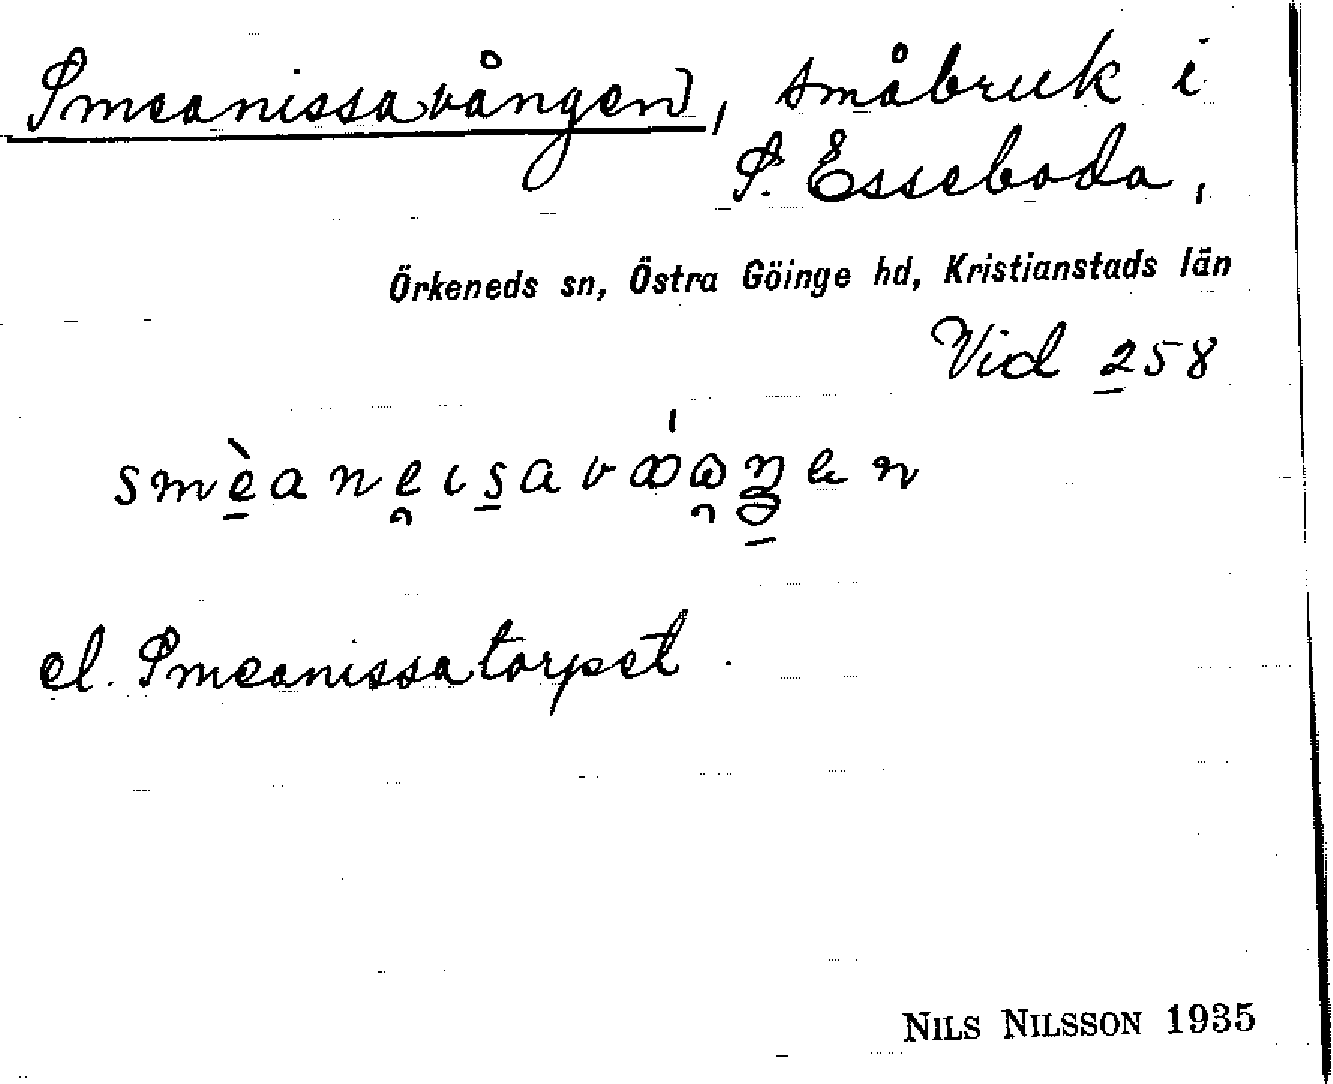 Smeanissavången, småbruk i
S. Esseboda,
Örkeneds sn, Östra Göinge hd, Kristianstads län
Vid 258
el. Smeanissatorpet.
NILS NILSSON 1935